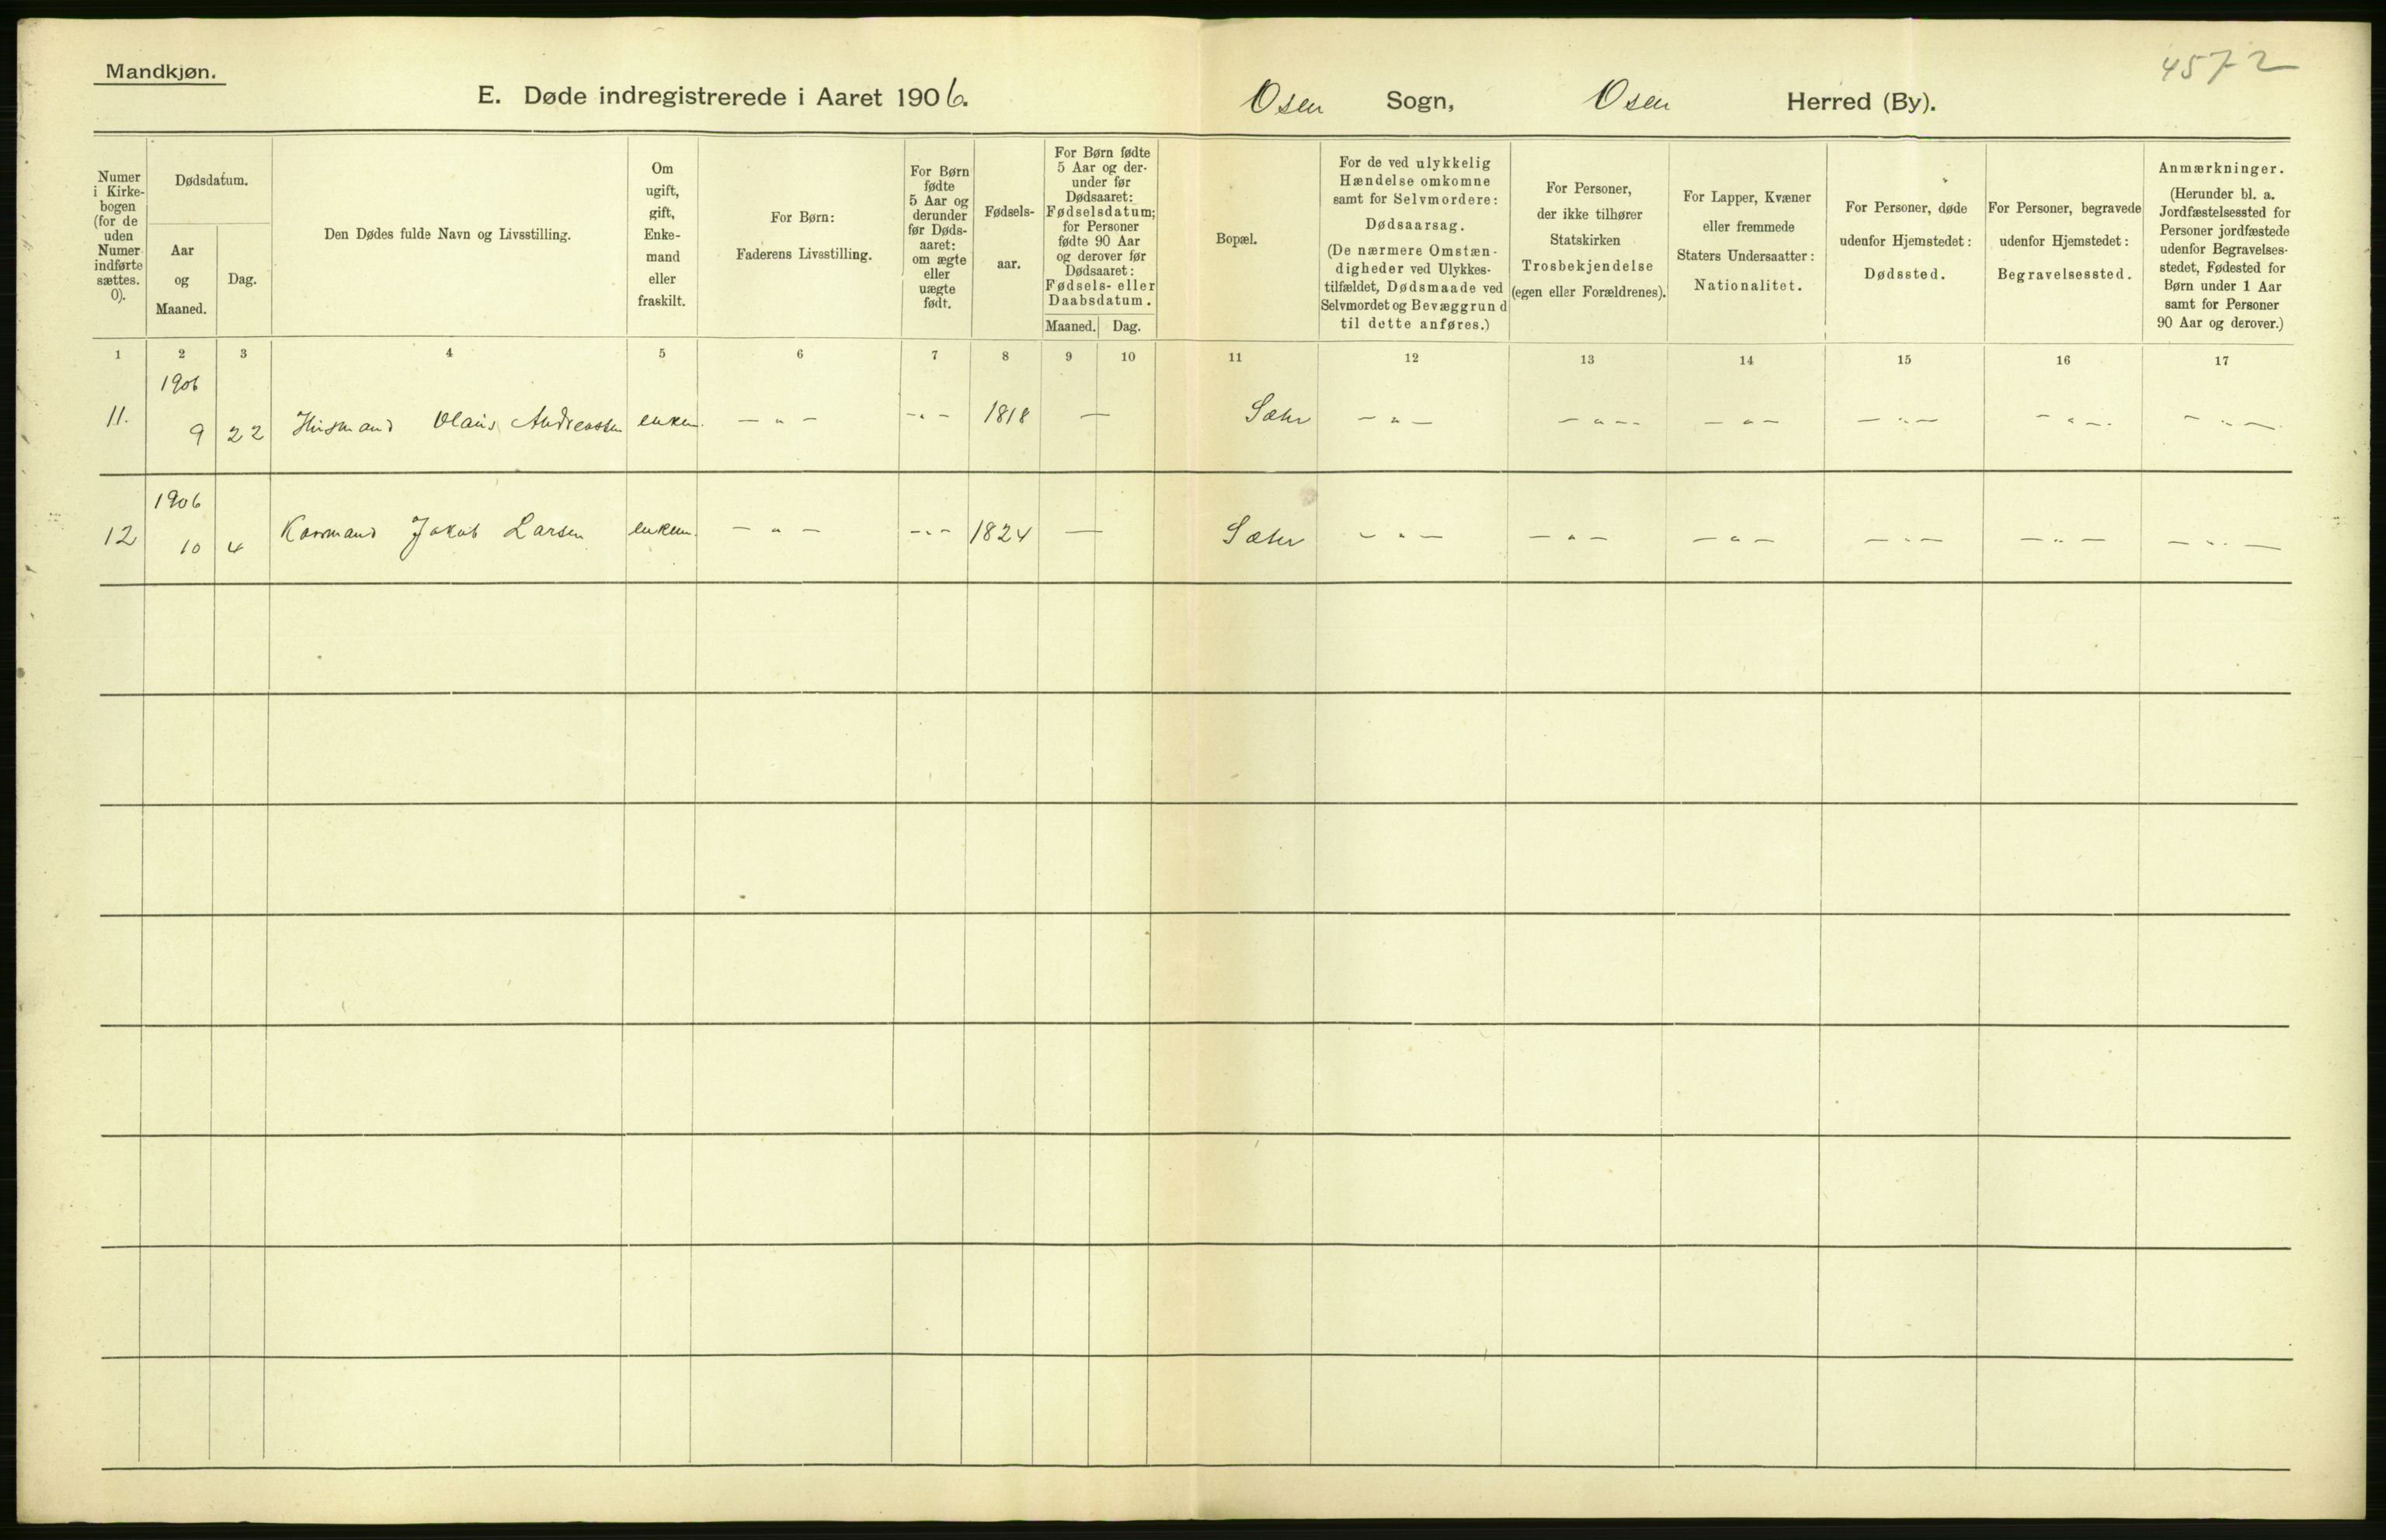 4572
Mandkjøn.
E. Døde indregistrerede i Aaret 1906.
Osen Sogn, Osen Herred (By).
Numer
i Kirke-
bogen
(for de
uden
Numer
indførte
sættes.
0).
Dødsdatum.
Aar
og
Maaned.
Dag.
Den Dødes fulde Navn og Livsstilling.
Om
ugift,
gift,
Enke-
mand
eller
fraskilt.
For Børn:
Faderens Livsstilling.
For Børn
fødte
5 Aar og
derunder
før Døds-
aaret:
om ægte
eller
uægte
født.
Fødsels-
aar.
For Børn fødte
5 Aar og der-
under før
Dødsaaret:
Fødselsdatum;
for Personer
fødte 90 Aar
og derover før
Dødsaaret:
Fødsels- eller
Daabsdatum.
Maaned. Dag.
Bopæl.
For de ved ulykkelig
Hændelse omkomne
samt for Selvmordere:
Dødsaarsag.
(De nærmere Omstæn-
digheder ved Ulykkes-
tilfældet, Dødsmaade ved
Selvmordet og Bevæggrund
til dette anføres.)
For Personer,
der ikke tilhører
Statskirken
Trosbekjendelse
(egen eller Forældrenes).
For Lapper, Kvæner
eller fremmede
Staters Undersaatter:
Nationalitet.
For Personer, døde
udenfor Hjemstedet:
Dødssted.
For Personer, begravede
udenfor Hjemstedet:
Begravelsessted.
Anmærkninger.
(Herunder bl. a.
Jordfæstelsessted for
Personer jordfæstede
udenfor Begravelses-
stedet, Fødested for
Børn under 1 Aar
samt for Personer
90 Aar og derover.)
1 2 3 4 5 6 7 8 9 10 11 12 13 14 15 16 17
1906
11. 9 22 Husmand Olaus Andreassen enkem. - " - - " - 1818 — Sæter - " - - " - - " - - " - - " - - " -
1906
12 10 4 Kaarmand Jakob Larsen enkem. - " - - " - 1824 — Sæter - " - - " - - " - - " - - " - - " -